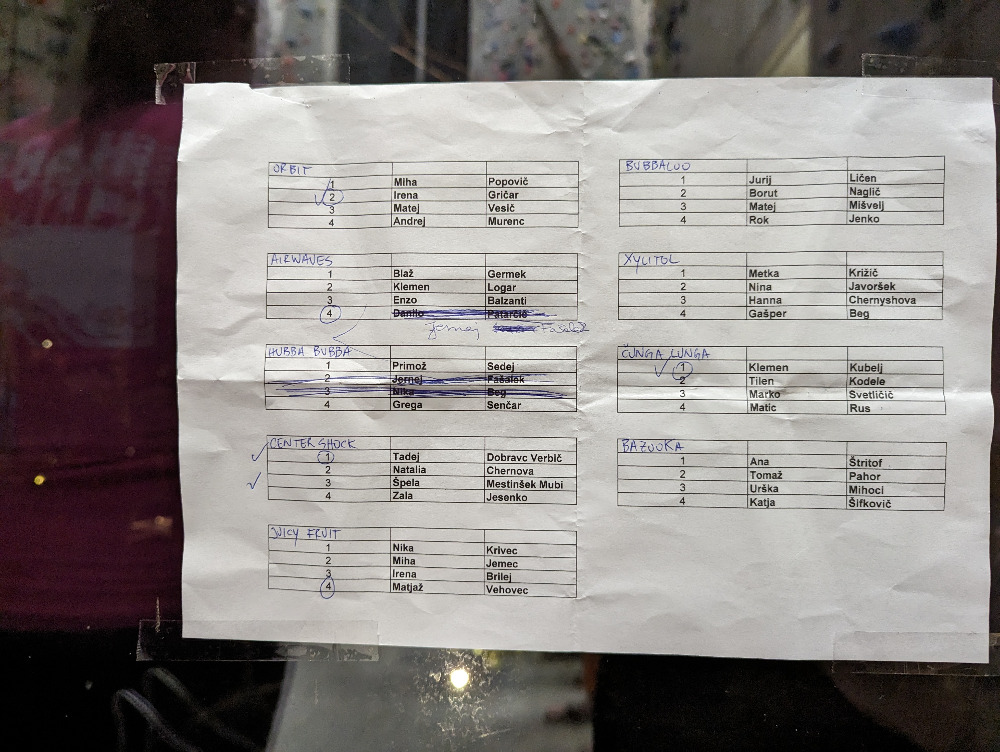 ORBIT
1 Miha Popovič
2 Irena Gričar
3 Matej Vesič
4 Andrej Murenc
AIRWAVES
1 Blaž Germek
2 Klemen Logar
3 Enzo Balzanti
4 Danilo Patarčić
Jernej Fašalek
HUBBA BUBBA
1 Primož Sedej
2 Jernej Fašalek
3 Nika Beg
4 Grega Senčar
CENTER SHOCK
1 Tadej Dobravc Verbič
2 Natalia Chernova
3 Špela Mestinšek Mubi
4 Zala Jesenko
JUICY FRUIT
1 Nika Krivec
2 Miha Jemec
3 Irena Brilej
4 Matjaž Vehovec
BUBBALOO
1 Jurij Ličen
2 Borut Naglič
3 Matej Mišvelj
4 Rok Jenko
XYLITOL
1 Metka Križič
2 Nina Javoršek
3 Hanna Chernyshova
4 Gašper Beg
ČUNGA LUNGA
1 Klemen Kubelj
2 Tilen Kodele
3 Marko Svetličič
4 Matic Rus
BAZOOKA
1 Ana Štritof
2 Tomaž Pahor
3 Urška Mihoci
4 Katja Šifkovič